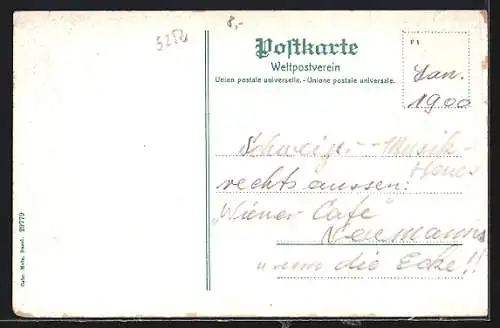 5252
8,-
Postkarte
Weltpostverein
Union postale universelle. - Unione postale universale.
P 1
Jan.
1900
Schweizer- Musik-
Haus
rechts aussen:
„Wiener Café"
Neumanns
um die Ecke!!
Gebr. Metz, Basel. 29779